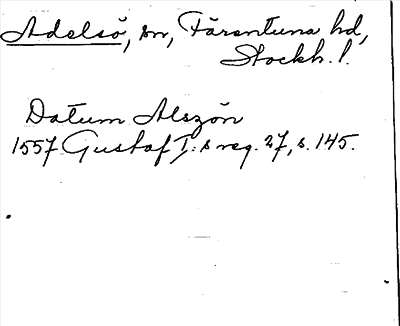 Adelsö, sn, Färentuna hd,
Stockh. l.
Datum Alszön
1557 Gustaf I:s reg. 27, s. 145.